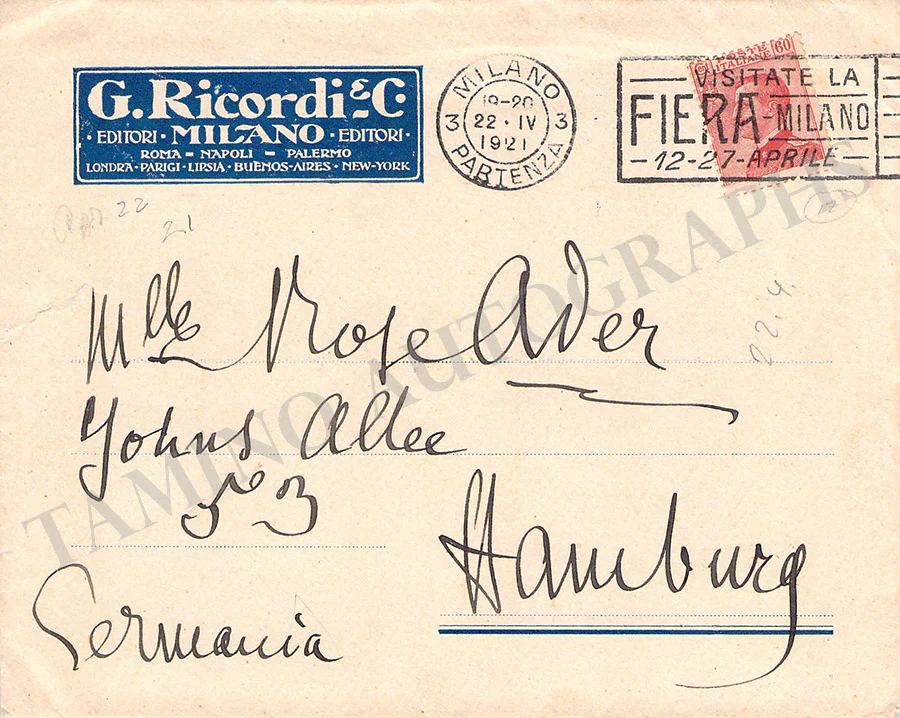 G. Ricordi & C.
· EDITORI · MILANO · EDITORI ·
ROMA - NAPOLI - PALERMO
LONDRA · PARIGI · LIPSIA · BUENOS-AIRES · NEW-YORK
MILANO
19-20
3 22 · IV 3
1921
PARTENZA
60
ITALIANE
VISITATE LA
FIERA-MILANO
-12-27-APRILE-
22
21
22.4.
Mlle Rose Ader
Johns Allee
53
Hamburg
Germania
TAMINO AUTOGRAPHS